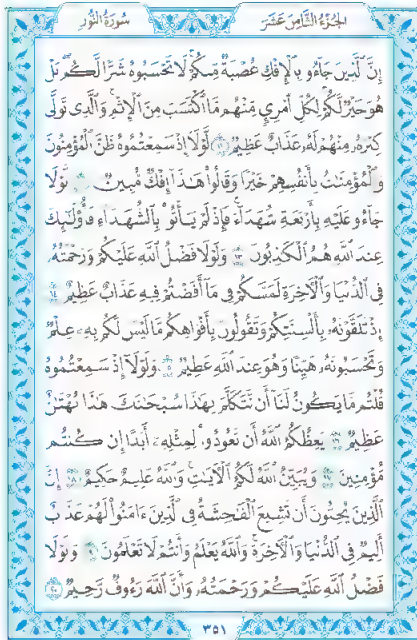 الجزء الثامن عشر
سورة النور
إِنَّ ٱلَّذِينَ جَآءُو بِٱلْإِفْكِ عُصْبَةٌ مِّنكُمْ لَا تَحْسَبُوهُ شَرًّا لَّكُم بَلْ
هُوَ خَيْرٌ لَّكُمْ لِكُلِّ ٱمْرِئٍ مِّنْهُم مَّا ٱكْتَسَبَ مِنَ ٱلْإِثْمِ وَٱلَّذِى تَوَلَّىٰ
كِبْرَهُۥ مِنْهُمْ لَهُۥ عَذَابٌ عَظِيمٌ ١١ لَّوْلَآ إِذْ سَمِعْتُمُوهُ ظَنَّ ٱلْمُؤْمِنُونَ
وَٱلْمُؤْمِنَٰتُ بِأَنفُسِهِمْ خَيْرًا وَقَالُوا۟ هَٰذَآ إِفْكٌ مُّبِينٌ ١٢ لَّوْلَا
جَآءُو عَلَيْهِ بِأَرْبَعَةِ شُهَدَآءَ فَإِذْ لَمْ يَأْتُوا۟ بِٱلشُّهَدَآءِ فَأُو۟لَٰٓئِكَ
عِندَ ٱللَّهِ هُمُ ٱلْكَٰذِبُونَ ١٣ وَلَوْلَا فَضْلُ ٱللَّهِ عَلَيْكُمْ وَرَحْمَتُهُۥ
فِى ٱلدُّنْيَا وَٱلْءَاخِرَةِ لَمَسَّكُمْ فِى مَآ أَفَضْتُمْ فِيهِ عَذَابٌ عَظِيمٌ ١٤
إِذْ تَلَقَّوْنَهُۥ بِأَلْسِنَتِكُمْ وَتَقُولُونَ بِأَفْوَاهِكُم مَّا لَيْسَ لَكُم بِهِۦ عِلْمٌ
وَتَحْسَبُونَهُۥ هَيِّنًا وَهُوَ عِندَ ٱللَّهِ عَظِيمٌ ١٥ وَلَوْلَآ إِذْ سَمِعْتُمُوهُ
قُلْتُم مَّا يَكُونُ لَنَآ أَن نَّتَكَلَّمَ بِهَٰذَا سُبْحَٰنَكَ هَٰذَا بُهْتَٰنٌ
عَظِيمٌ ١٦ يَعِظُكُمُ ٱللَّهُ أَن تَعُودُوا۟ لِمِثْلِهِۦٓ أَبَدًا إِن كُنتُم
مُّؤْمِنِينَ ١٧ وَيُبَيِّنُ ٱللَّهُ لَكُمُ ٱلْءَايَٰتِ وَٱللَّهُ عَلِيمٌ حَكِيمٌ ١٨ إِنَّ
ٱلَّذِينَ يُحِبُّونَ أَن تَشِيعَ ٱلْفَٰحِشَةُ فِى ٱلَّذِينَ ءَامَنُوا۟ لَهُمْ عَذَابٌ
أَلِيمٌ فِى ٱلدُّنْيَا وَٱلْءَاخِرَةِ وَٱللَّهُ يَعْلَمُ وَأَنتُمْ لَا تَعْلَمُونَ ١٩ وَلَوْلَا
فَضْلُ ٱللَّهِ عَلَيْكُمْ وَرَحْمَتُهُۥ وَأَنَّ ٱللَّهَ رَءُوفٌ رَّحِيمٌ ٢٠
٣٥١